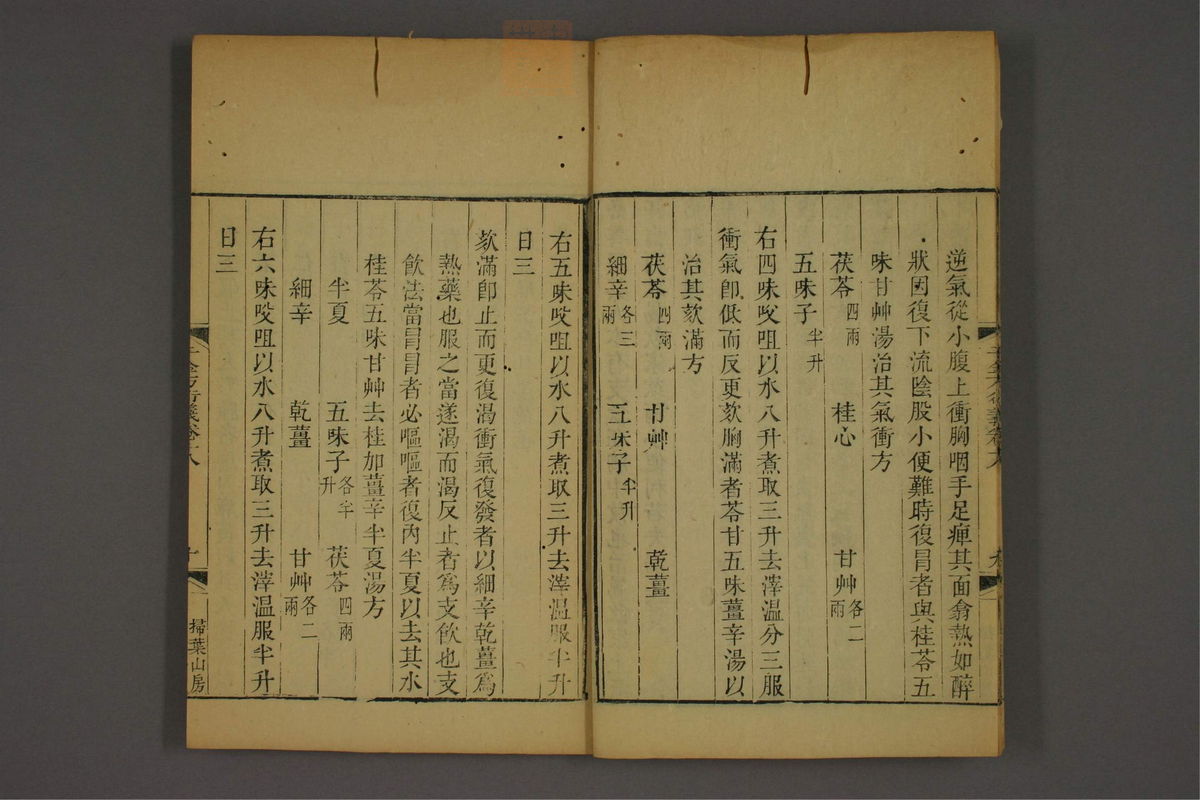 逆氣從小腹上衝胸咽手足痺其面翕熱如醉
狀因復下流陰股小便難時復冒者與桂苓五
味甘艸湯治其氣衝方
茯苓四兩 桂心 甘艸各二兩
五味子半升
右四味㕮咀以水八升煮取三升去滓温分三服
衝氣卽低而反更欬胸滿者苓甘五味薑辛湯以
治其欬滿方
茯苓四兩 甘艸 乾薑
細辛各三兩 五味子半升
右五味㕮咀以水八升煮取三升去滓温服半升
日三
欬滿卽止而更復渴衝氣復發者以細辛乾薑爲
熱藥也服之當遂渴而渴反止者爲支飲也支
飲法當冒冒者必嘔嘔者復內半夏以去其水
桂苓五味甘艸去桂加薑辛半夏湯方
半夏 五味子各半升 茯苓四兩
細辛 乾薑 甘艸各二兩
右六味㕮咀以水八升煮取三升去滓温服半升
日三
千金方衍義卷十八
掃葉山房